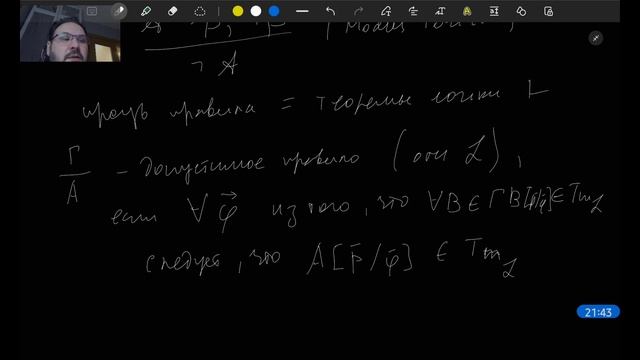 ¬A
правила = теоремы логики ⊢
Γ/A – допустимое правило (отн L),
если ∀φ⃗ из того, что ∀B∈Γ B[p̄/φ̄]∈Tm_L
следует, что A[p̄/φ̄] ∈ Tm_L
21:43